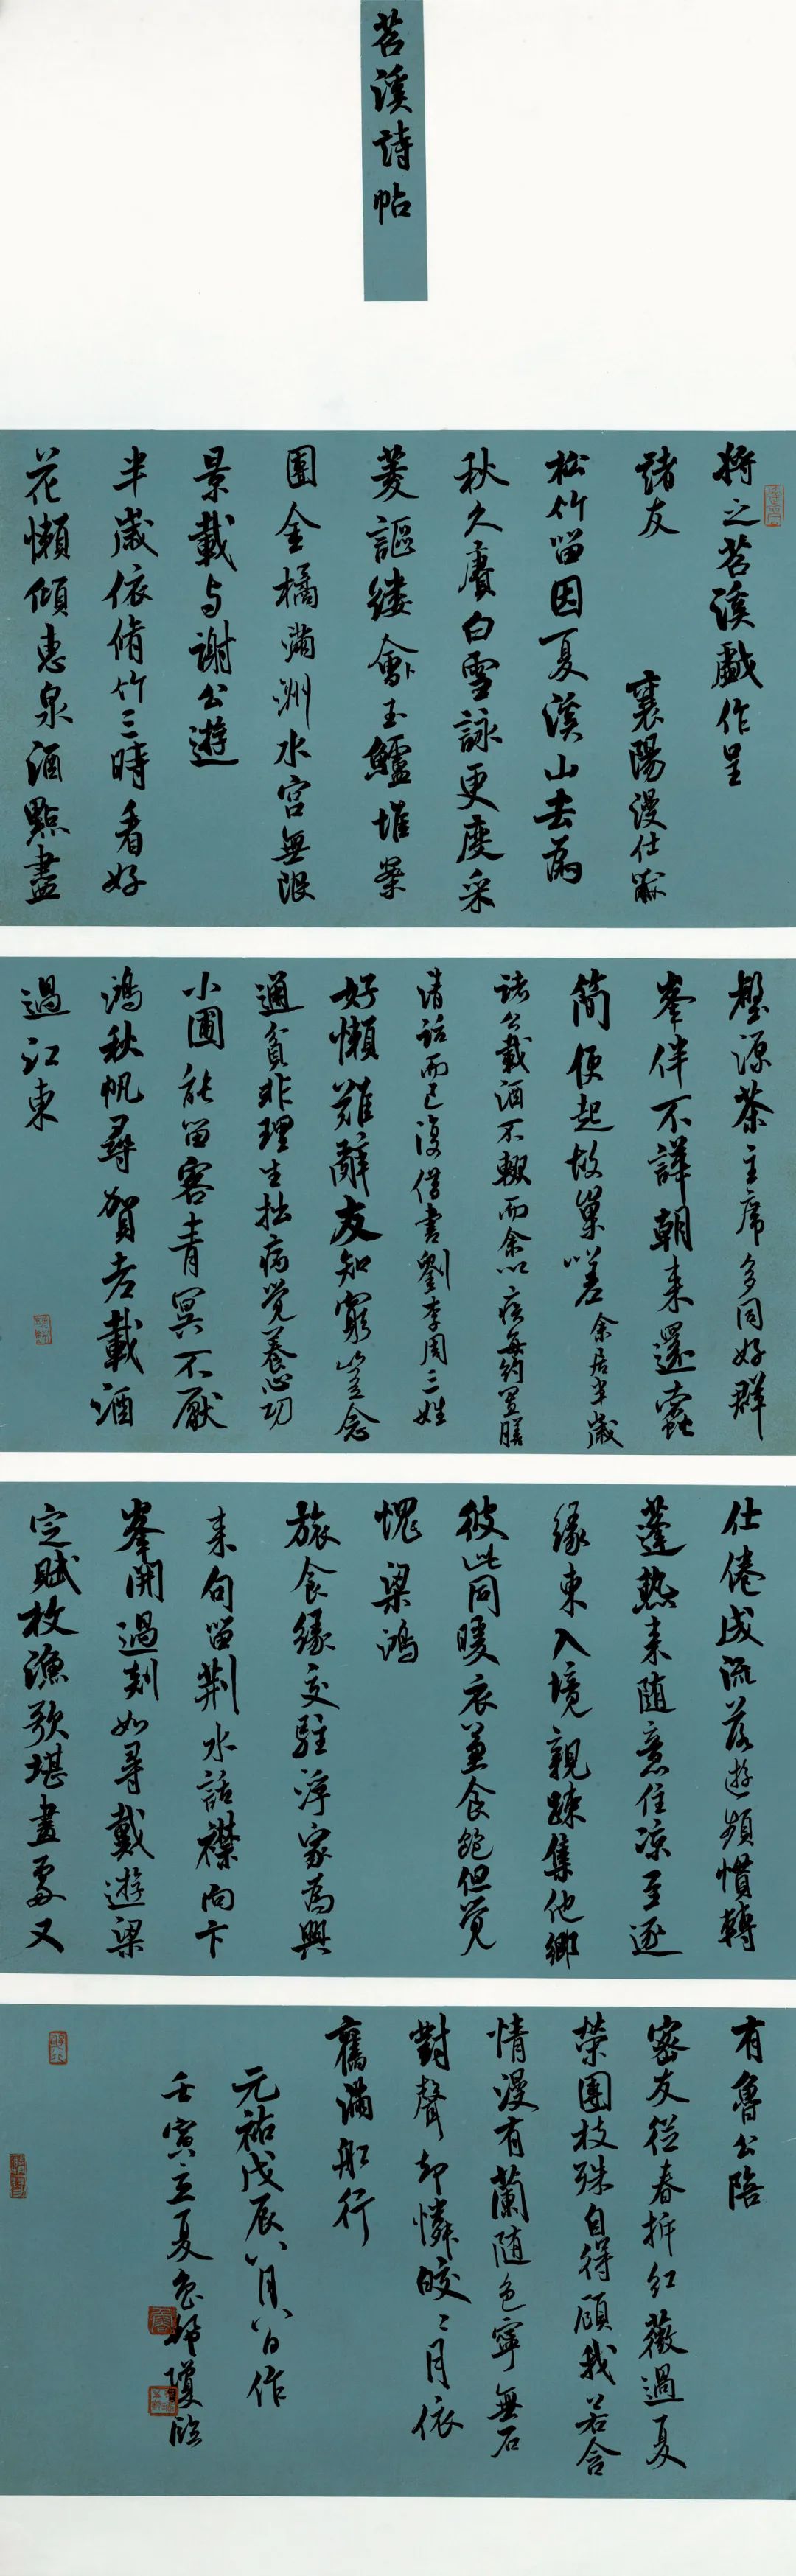 苕溪詩帖
將之苕溪戲作呈
諸友
襄陽漫仕黻
松竹留因夏溪山去為
秋久賡白雪詠更度采
菱謳縷鱠玉鱸堆案
團金橘滿洲水宮無限
景載与謝公遊
半歲依脩竹三時看好
花懶傾惠泉酒點盡
壑源茶主席多同好群
峯伴不譁朝来還蠹
簡便起故巢嗟
余居半歲
諸公載酒不輟而余以疾每約置膳
清話而已復借書劉李周三姓
好懶難辭友知窮豈念
通貧非理生拙病覺養心功
小圃能留客青冥不厭
鴻秋帆尋賀老載酒
過江東
仕倦成流落遊頻慣轉
蓬熱来隨意住涼至逐
緣東入境親踈集他鄉
彼此同暖衣兼食飽但覺
愧梁鴻
旅食緣交駐浮家為興
来句留荆水話襟向卞
峯開過剡如尋戴遊梁
定賦枚漁歌堪畫處又
有魯公陪
密友從春拆紅薇過夏
榮團枝殊自得顧我若含
情漫有蘭隨色寧無石
對聲却憐皎〻月依
舊滿舡行
元祐戊辰八月八日作
壬寅立夏
瓊臨